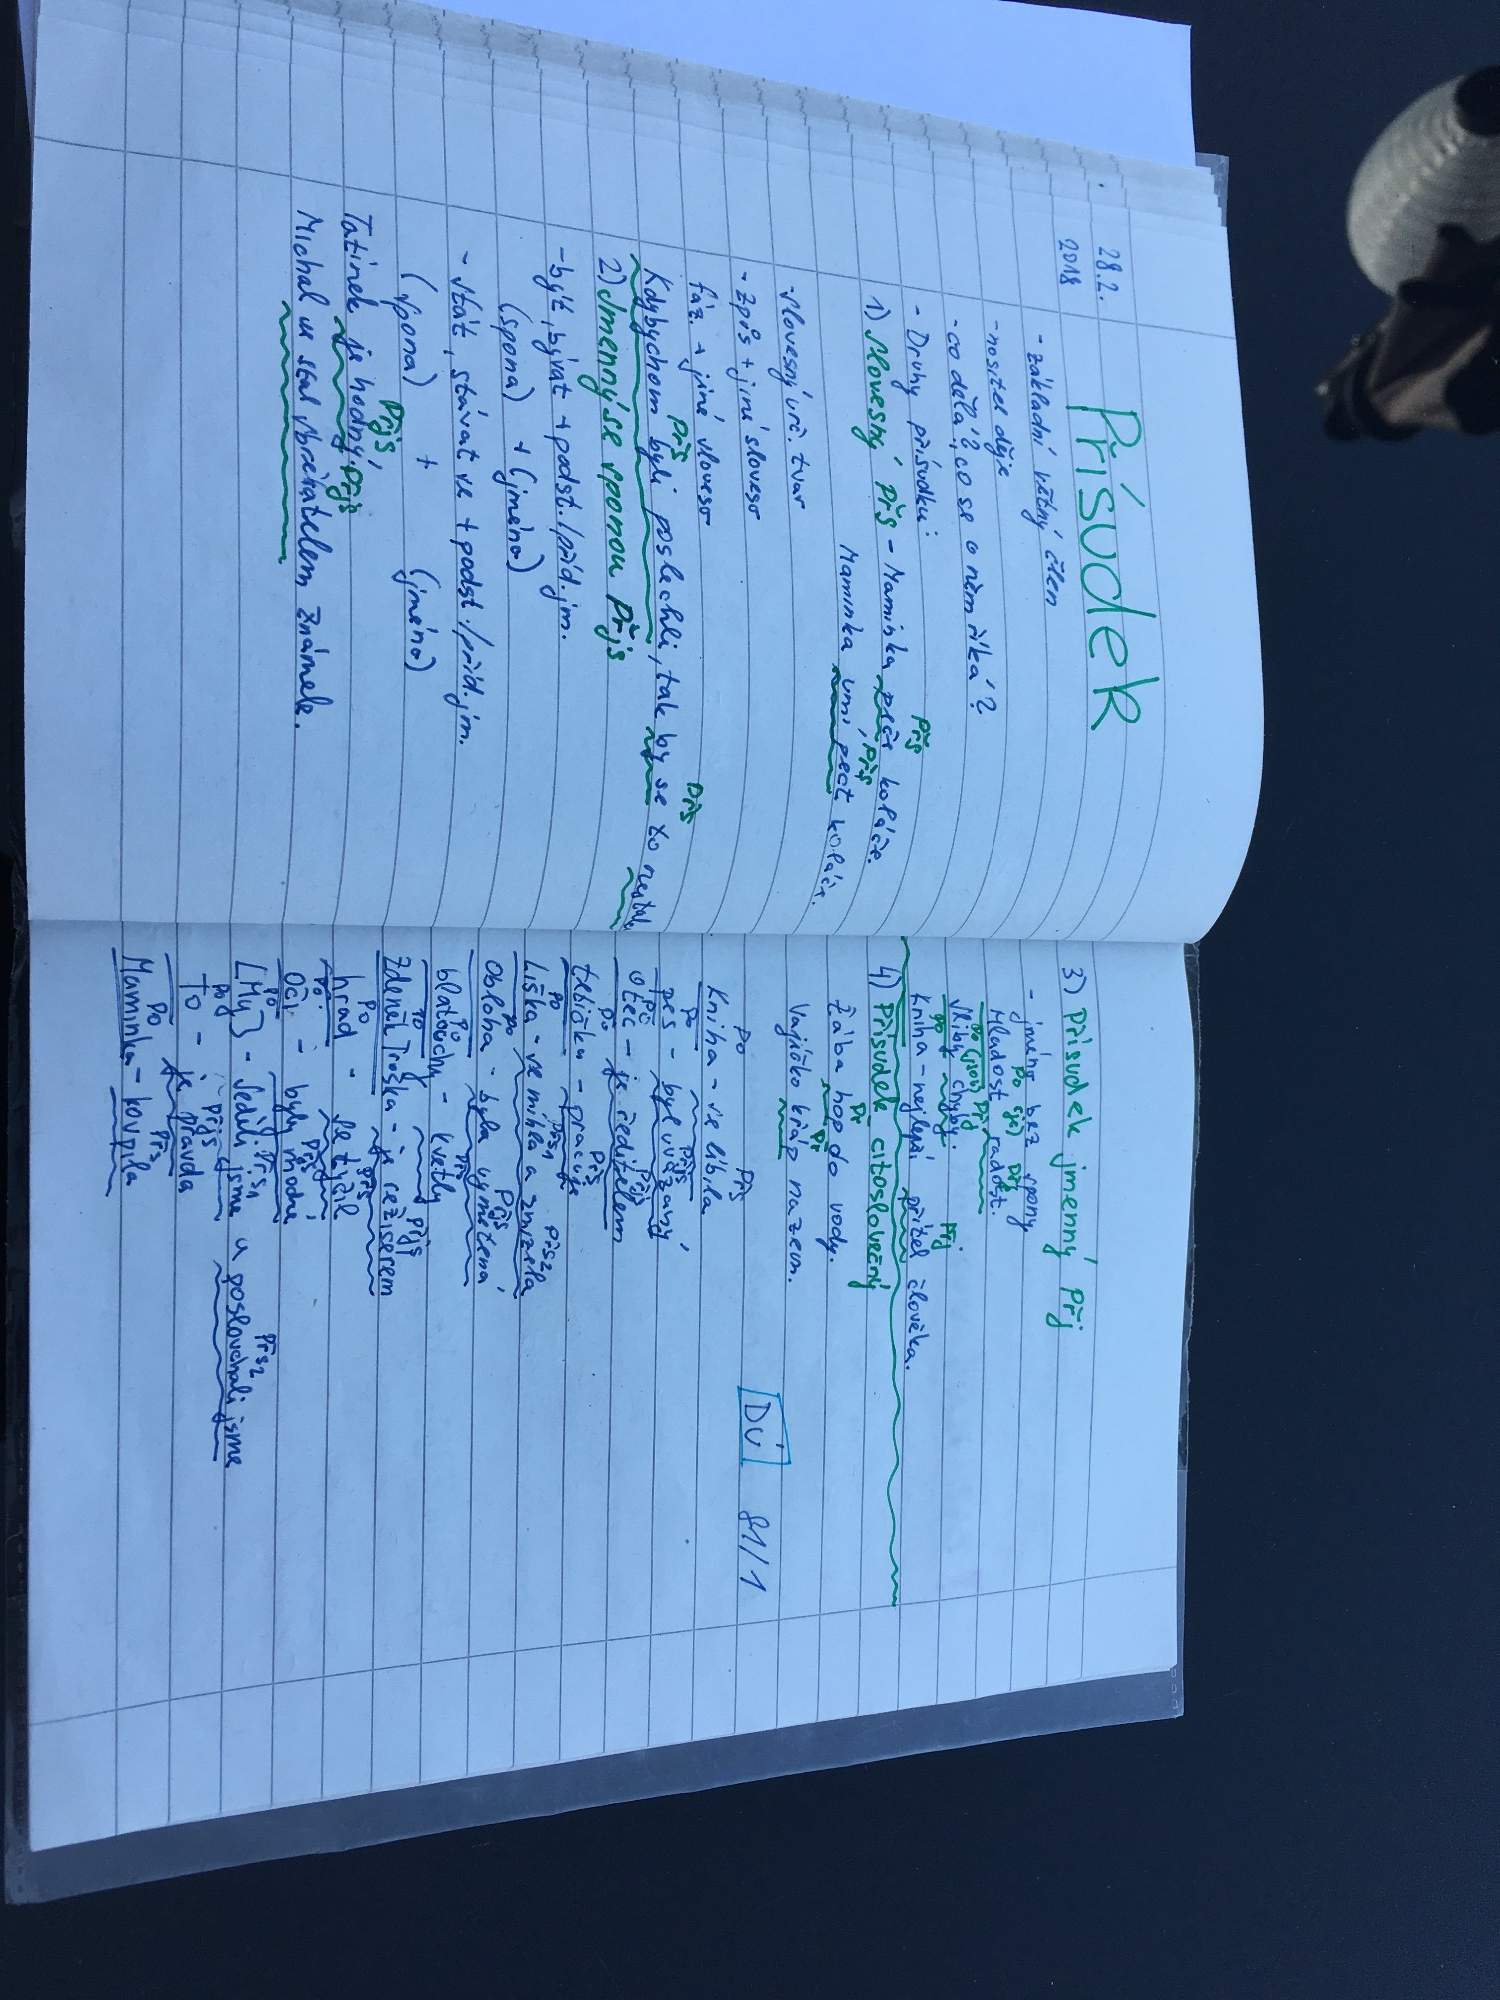 28.2.
2018
Přísudek
- základní větný člen
- nositel děje
- co dělá?, co se o něm říká?
- Druhy přísudků:
1) Slovesný Přs - Maminka peče koláče.
Přs
Maminka umí péct koláče.
Přs
- slovesný urč. tvar
- způs + jiné sloveso
- fáz. + jiné sloveso
Přs Přs
Kdybychom byli poslechli, tak by se to nestalo
2) Jmenný se sponou Přjs
- být, bývat + podst./příd. jm.
(spona) + (jméno)
- stát, stávat se + podst./příd. jm.
(spona) + (jméno)
Přjs
Tatínek je hodný.
Přjs
Michal se stal sběratelem známek.
3) Přísudek jmenný Přj
- jméno bez spony
Po (je) Přj
Mladost radost.
Po (jsou) Přj
Sliby chyby.
Po Přj
Kniha - nejlepší přítel člověka.
4) Přísudek citoslovečný
Př
Žába hop do vody.
Př
Vajíčko křáp na zem.
DÚ 81/1
Po Přs
Kniha - se líbila
Po Přjs
pes - byl uvázaný
Po Přjs
otec - je ředitelem
Po Přs
trbičku - pracuje
Po Přs1 Přs2
Liška - se mihla a zmizela
Po Přjs
obloha - byla vymetená
Po Přs
blatouchy - kvetly
Po Přjs
Zdeněk Troška - je režisérem
Po Přs
hrad - se tyčil
Po Přjs
Oči - byly modré
Po Přs1 Přs2
[My] - Seděli jsme a poslouchali jsme
Po Přjs
To - je pravda
Po Přs
Maminka - koupila